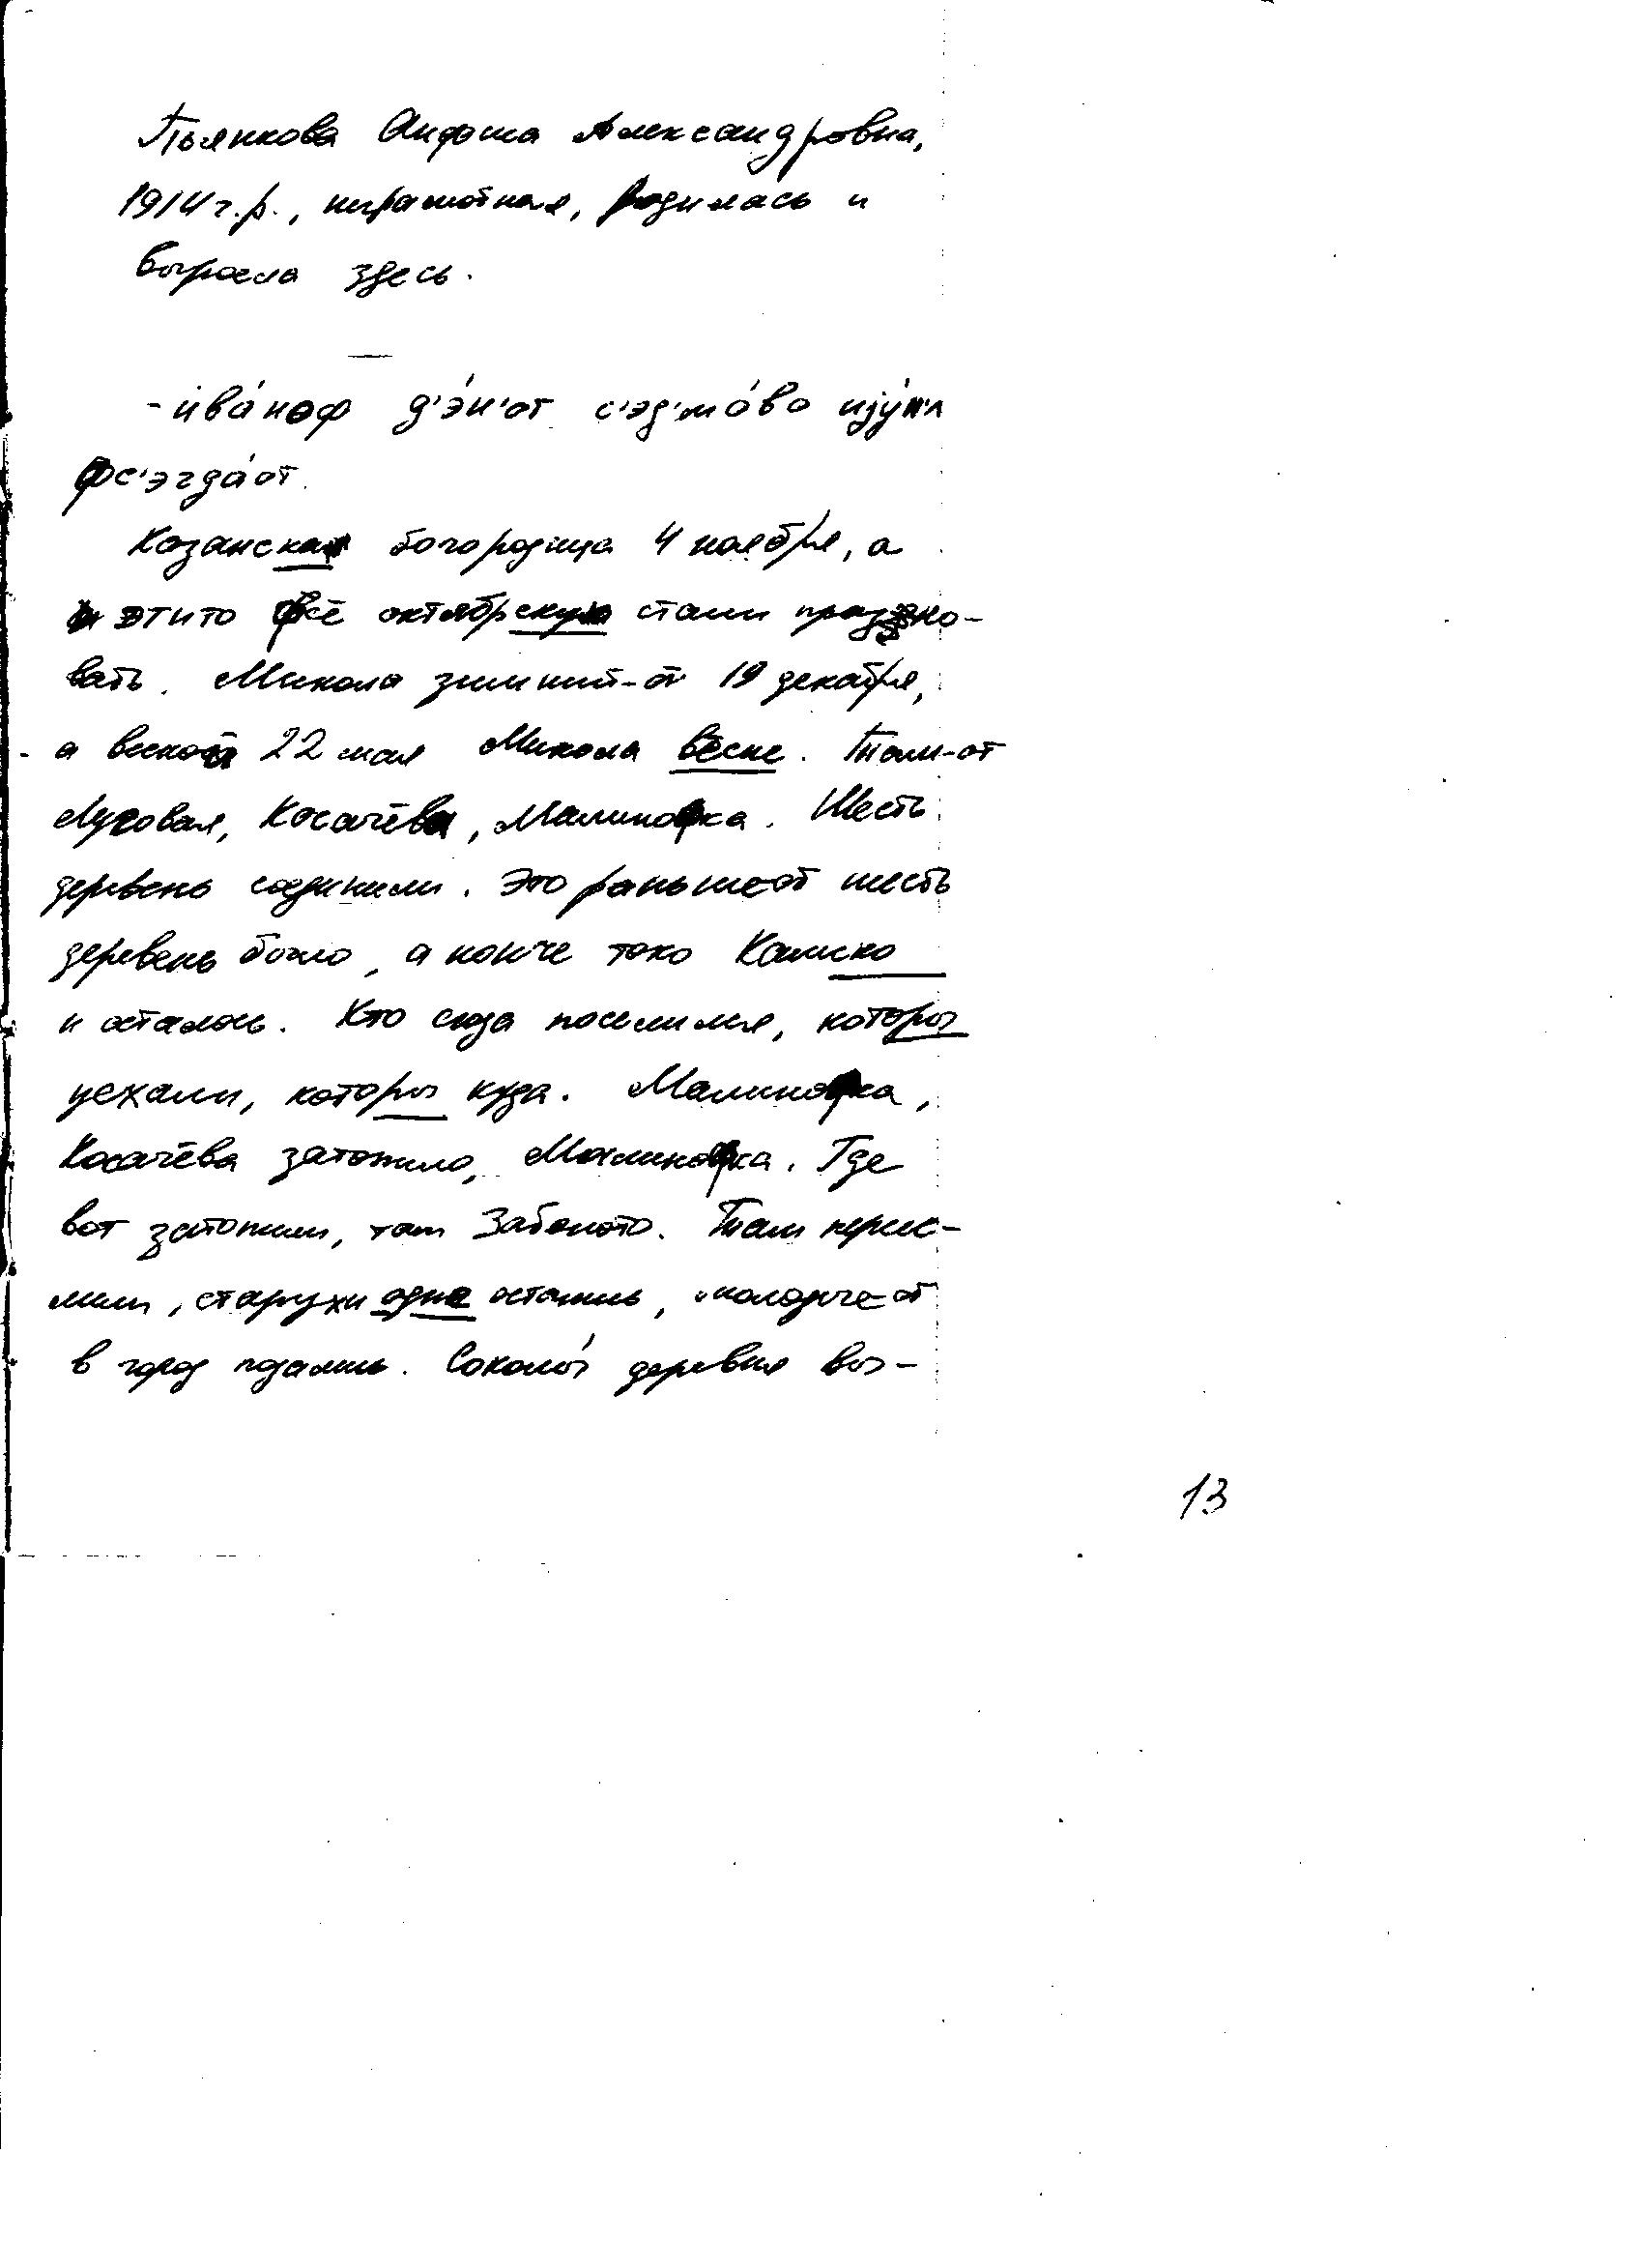 Пьянкова Анфиса Александровна,
1914 г.р., неграмотная, родилась и
выросла здесь.
- ива́ноф д'э́н'от с'эд'мо́во ијỳл'л
фс'эгда́от.
Казанская богородица 4 ноября, а
этито фсё октябрскую стали праздно-
вать. Микола зимний-от 19 декабря,
а весной 22 мая Микола вёсне. Там-от
Луговая, Косачёва, Малинофка. Шесть
деревень соединили. Это раньше-от шесть
деревень было, а нонче токо Камско
и осталось. Кто сюда поселился, которы
уехали, которы куда. Малинофка,
Косачёва затопило, Малинофка. Где
вот затопили, там Заболото. Там пересе-
лили, старухи одне остались, молодые-от
в город подались. Соколы́ деревня вы-
13